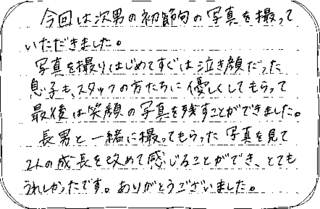 今回は次男の初節句の写真を撮って
いただきました。
写真を撮りはじめてすぐは泣き顔だった
息子も、スタッフの方たちに優しくしてもらって
最後は笑顔の写真を残すことができました。
長男と一緒に撮ってもらった写真を見て
2人の成長を改めて感じることができ、とても
うれしかったです。ありがとうございました。